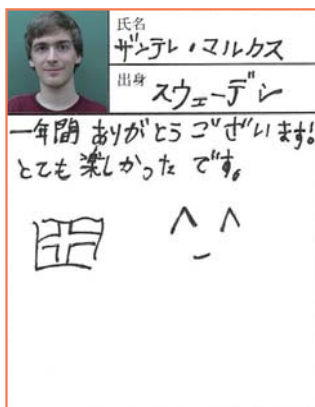 氏名
ザンテレ・マルクス
出身
スウェーデン
一年間 ありがとう ございます!
とても 楽しかった です。